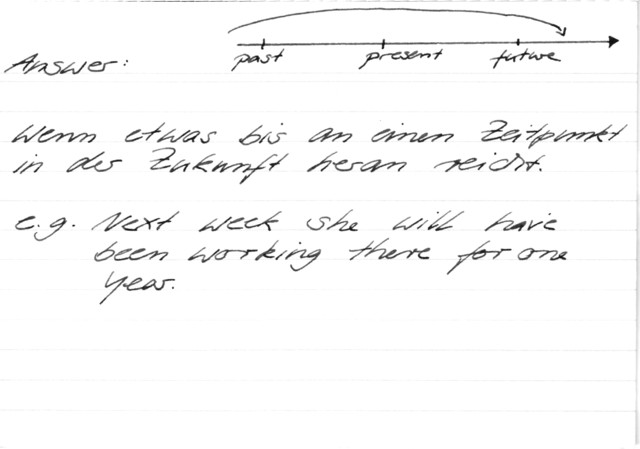 past present future
Answer:
Wenn etwas bis an einen Zeitpunkt
in der Zukunft heran reicht.
e.g. Next week she will have
been working there for one
year.